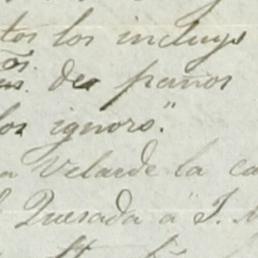 tos los incluyo
de paños
los ignoro."
a Velarde la ca
Quesada a "J.